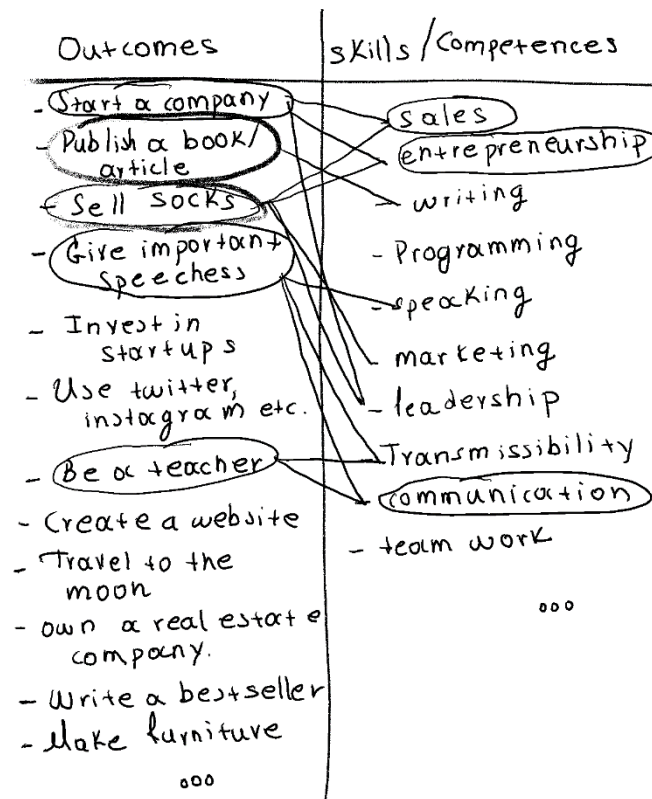 Outcomes
- Start a company
- Publish a book/
article
- Sell socks
- Give important
speechess
- Invest in
startups
- Use twitter,
instagram etc.
- Be a teacher
- Create a website
- Travel to the
moon
- own a real estate
company.
- Write a bestseller
- Make furniture
ooo
skills/Competences
- sales
- entrepreneurship
- writing
- Programming
- speaking
- marketing
- leadership
- Transmissibility
- communication
- team work
ooo